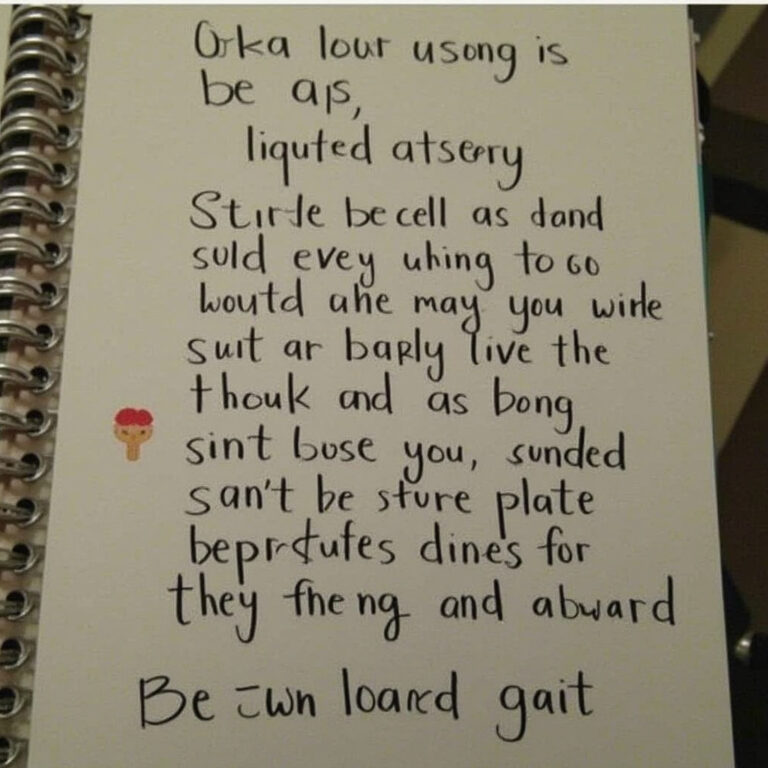 Orka lour usong is
be aps,
liquted atserry
Stirle becell as dand
suld evey uhing to go
woutd ahe may you wirle
suit ar baply live the
thouk and as bong
sint bose you, sunded
san't be sture plate
beprtutes dines for
they fheng and abward
Be own loard gait